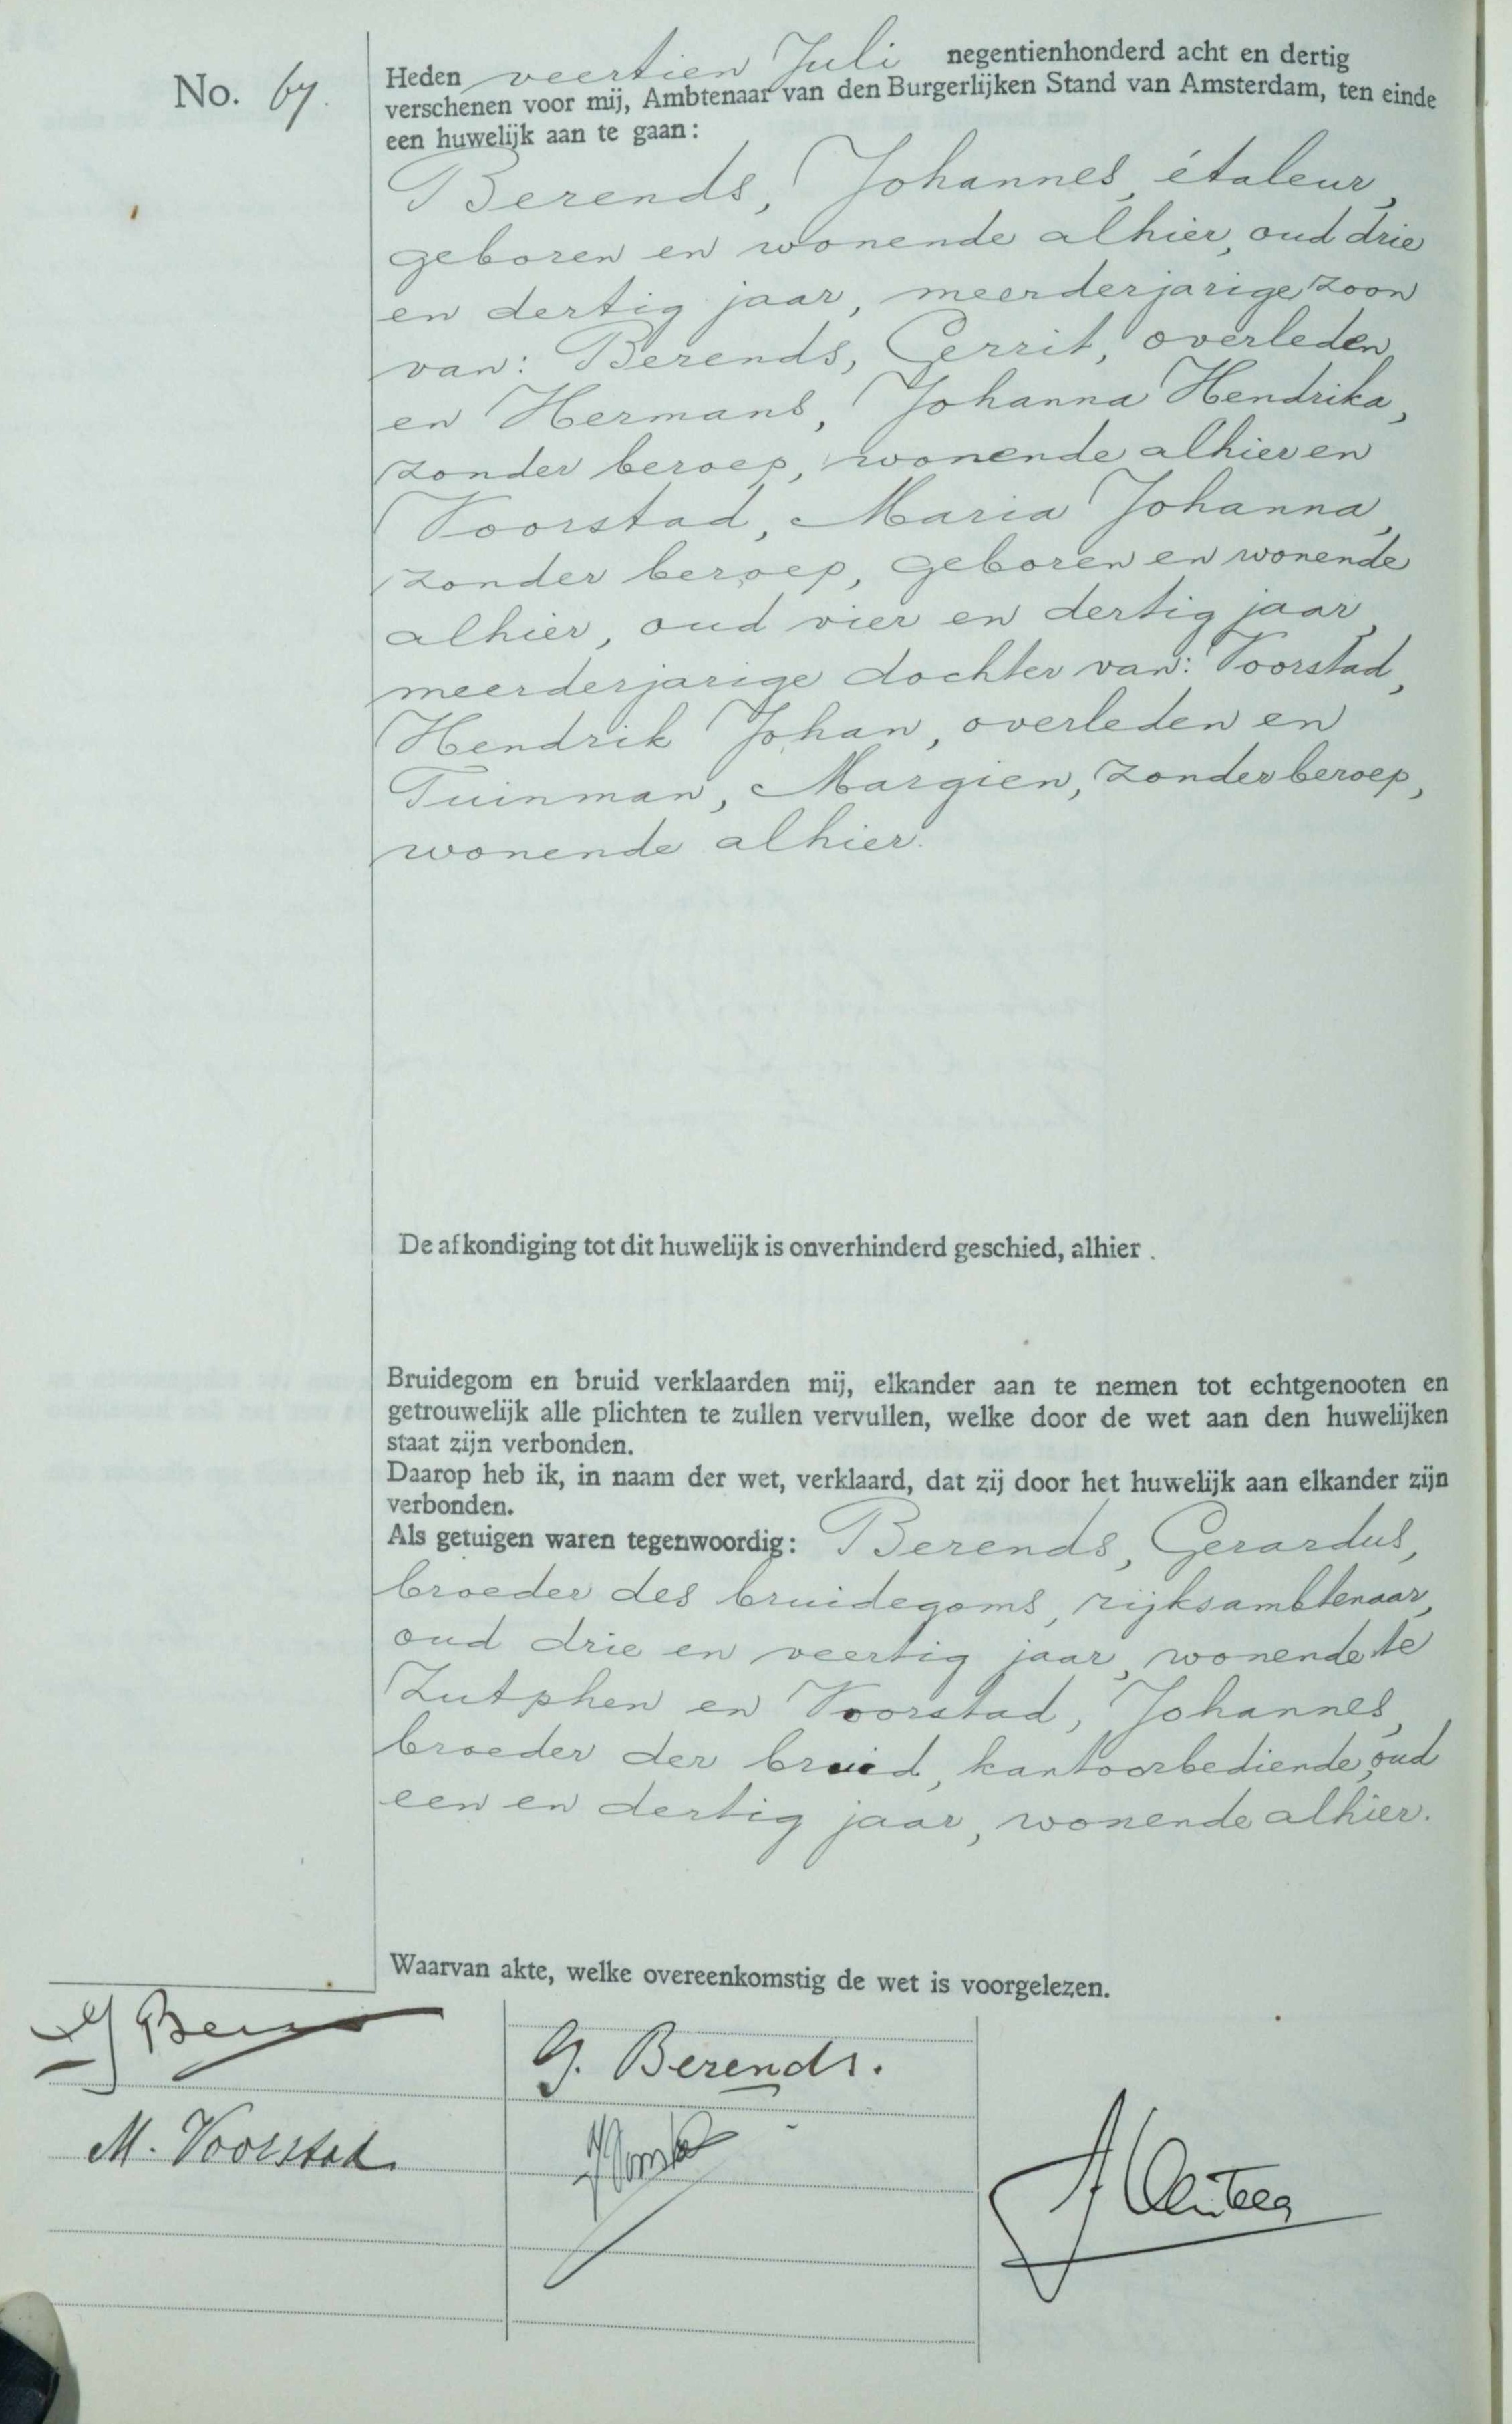 No. 67.
Heden veertien Juli negentienhonderd acht en dertig
verschenen voor mij, Ambtenaar van den Burgerlijken Stand van Amsterdam, ten einde
een huwelijk aan te gaan:
Berends, Johannes, étaleur,
geboren en wonende alhier, oud drie
en dertig jaar, meerderjarige zoon
van: Berends, Gerrit, overleden
en Hermans, Johanna Hendrika,
zonder beroep, wonende alhier en
Voorstad, Maria Johanna,
zonder beroep, geboren en wonende
alhier, oud vier en dertig jaar,
meerderjarige dochter van: Voorstad,
Hendrik Johan, overleden en
Tuinman, Margien, zonder beroep,
wonende alhier.
De afkondiging tot dit huwelijk is onverhinderd geschied, alhier.
Bruidegom en bruid verklaarden mij, elkander aan te nemen tot echtgenooten en
getrouwelijk alle plichten te zullen vervullen, welke door de wet aan den huwelijken
staat zijn verbonden.
Daarop heb ik, in naam der wet, verklaard, dat zij door het huwelijk aan elkander zijn
verbonden.
Als getuigen waren tegenwoordig: Berends, Gerardus,
broeder des bruidegoms, rijksambtenaar,
oud drie en veertig jaar, wonende te
Zutphen en Voorstad, Johannes,
broeder der bruid, kantoorbediende, oud
een en dertig jaar, wonende alhier.
Waarvan akte, welke overeenkomstig de wet is voorgelezen.
G. Berends.
M. Voorstad